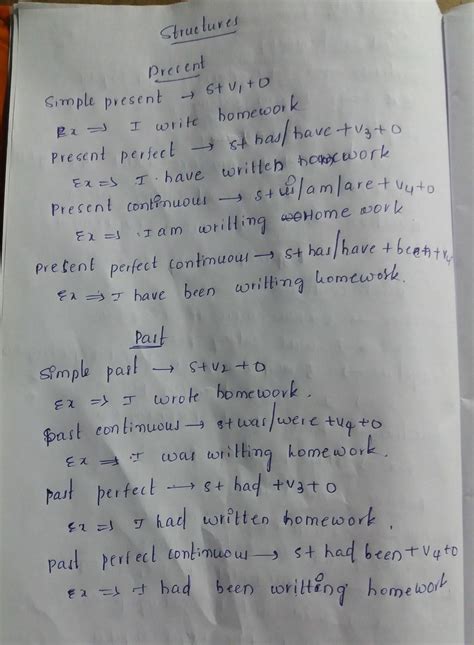 Structures
Present
Simple present → S+V1+O
Ex ⇒ I write homework
Present perfect → S+has/have+V3+O
Ex ⇒ I have written homework
Present continuous → S+is/am/are+V4+O
Ex ⇒ I am writting Home work
present perfect continuous → S+has/have+been+V4
Ex ⇒ I have been writting homework.
Past
Simple past → S+V2+O
Ex ⇒ I wrote homework.
Past continuous → S+was/were+V4+O
Ex ⇒ I was writting homework.
past perfect → S+had+V3+O
Ex ⇒ I had written homework.
past perfect continuous → S+had been+V4+O
Ex ⇒ I had been writting homework